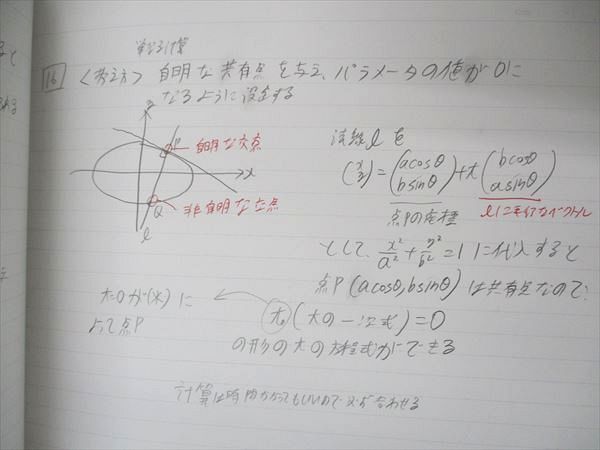 16 <考え方> 自明な共有点を与え、パラメータの値が0に
なるように設定する
P 自明な交点
x
Q 非自明な交点
l
法線lを
(x y) = (acosθ bsinθ) + t (bcosθ asinθ)
点Pの座標 lに平行なベクトル
として、x²/a² + y²/b² = 1 に代入すると
点P (acosθ, bsinθ) は共有点なので、
t=0が(*)に
よって点P
t (tの一次式) = 0
の形のtの方程式ができる
計算は時間かかってもいいので必ず合わせる